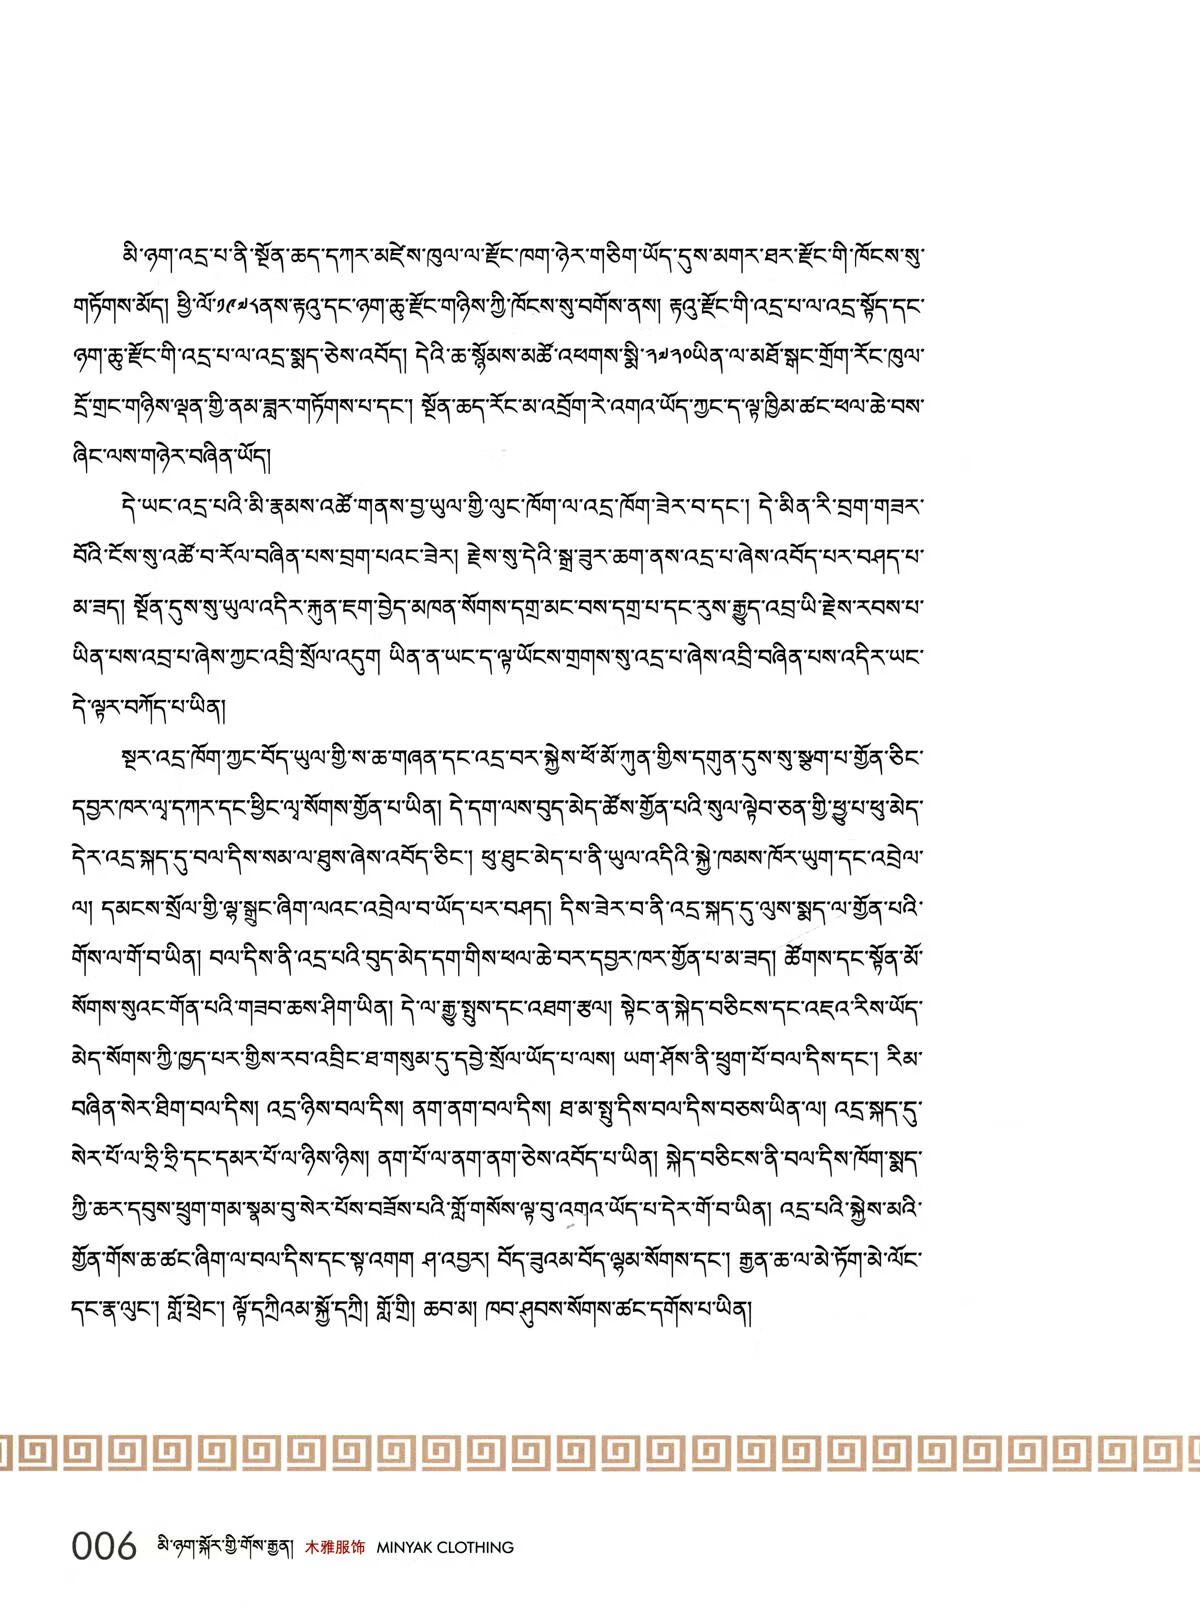 མི་ཉག་འདྲ་པ་ནི་སྔོན་ཆད་དཀར་མཛེས་ཁུལ་ལ་རྫོང་ཁག་ཉེར་གཅིག་ཡོད་དུས་མགར་ཐར་རྫོང་གི་ཁོངས་སུ་
གཏོགས་མོད། ཕྱི་ལོ་༡༩༧༨ནས་རྟའུ་དང་ཉག་ཆུ་རྫོང་གཉིས་ཀྱི་ཁོངས་སུ་བགོས་ནས། རྟའུ་རྫོང་གི་འདྲ་པ་ལ་འདྲ་སྟོད་དང་
ཉག་ཆུ་རྫོང་གི་འདྲ་པ་ལ་འདྲ་སྨད་ཅེས་འབོད། དེའི་ཆ་སྙོམས་མཚོ་འཕགས་སྨི་༢༧༢༠ཡིན་ལ་མཐོ་སྒང་གྲོག་རོང་ཁུལ་
དྲོ་གྲང་གཉིས་ལྡན་གྱི་ནམ་ཟླར་གཏོགས་པ་དང་། སྔོན་ཆད་རོང་མ་འབྲོག་རེ་འགའ་ཡོད་ཀྱང་ད་ལྟ་ཁྱིམ་ཚང་ཕལ་ཆེ་བས་
ཞིང་ལས་གཉེར་བཞིན་ཡོད།
དེ་ཡང་འདྲ་པའི་མི་རྣམས་འཚོ་གནས་བྱ་ཡུལ་གྱི་ལུང་ཁོག་ལ་འདྲ་ཁོག་ཟེར་བ་དང་། དེ་མིན་རི་བྲག་གཟར་
བོའི་ངོས་སུ་འཚོ་བ་རོལ་བཞིན་པས་བྲག་པའང་ཟེར། རྗེས་སུ་དེའི་སྒྲ་ཟུར་ཆག་ནས་འདྲ་པ་ཞེས་འབོད་པར་བཤད་པ་
མ་ཟད། སྔོན་དུས་སུ་ཡུལ་འདིར་རྐུན་ཇག་བྱེད་མཁན་སོགས་དགྲ་མང་བས་དགྲ་པ་དང་རུས་རྒྱུད་འབྲ་ཡི་རྗེས་རབས་པ་
ཡིན་པས་འབྲ་པ་ཞེས་ཀྱང་འབྲི་སྲོལ་འདུག ཡིན་ན་ཡང་ད་ལྟ་ཡོངས་གྲགས་སུ་འདྲ་པ་ཞེས་འབྲི་བཞིན་པས་འདིར་ཡང་
དེ་ལྟར་བཀོད་པ་ཡིན།
སྔར་འདྲ་ཁོག་ཀྱང་བོད་ཡུལ་གྱི་ས་ཆ་གཞན་དང་འདྲ་བར་སྐྱེས་ཕོ་མོ་ཀུན་གྱིས་དགུན་དུས་སུ་སྩག་པ་གྱོན་ཅིང་
དབྱར་ཁར་ལྭ་དཀར་དང་ཕྱིང་ལྭ་སོགས་གྱོན་པ་ཡིན། དེ་དག་ལས་བུད་མེད་ཚོས་གྱོན་པའི་སུལ་ལྟེབ་ཅན་གྱི་ཕྱུ་པ་ཕུ་མེད་
དེར་འདྲ་སྐད་དུ་བལ་དིས་སམ་ལ་ཐུས་ཞེས་འབོད་ཅིང་། ཕུ་ཐུང་མེད་པ་ནི་ཡུལ་འདིའི་སྐྱེ་ཁམས་ཁོར་ཡུག་དང་འབྲེལ་
ལ། དམངས་སྲོལ་གྱི་ལྷ་སྒྲུང་ཞིག་ལའང་འབྲེལ་བ་ཡོད་པར་བཤད། དིས་ཟེར་བ་ནི་འདྲ་སྐད་དུ་ལུས་སྨད་ལ་གྱོན་པའི་
གོས་ལ་གོ་བ་ཡིན། བལ་དིས་ནི་འདྲ་པའི་བུད་མེད་དག་གིས་ཕལ་ཆེ་བར་དབྱར་ཁར་གྱོན་པ་མ་ཟད། ཚོགས་དང་སྟོན་མོ་
སོགས་སུའང་གོན་པའི་གཟབ་ཆས་ཤིག་ཡིན། དེ་ལ་རྒྱུ་སྤུས་དང་འཐག་རྩལ། སྟེང་ན་སྐེད་བཅིངས་དང་འཇའ་རིས་ཡོད་
མེད་སོགས་ཀྱི་ཁྱད་པར་གྱིས་རབ་འབྲིང་ཐ་གསུམ་དུ་དབྱེ་སྲོལ་ཡོད་པ་ལས། ཡག་ཤོས་ནི་ཕྲུག་པོ་བལ་དིས་དང་། རིམ་
བཞིན་སེར་ཐིག་བལ་དིས། འདྲ་ཉིས་བལ་དིས། ནག་ནག་བལ་དིས། ཐ་མ་སྤུ་དིས་བལ་དིས་བཅས་ཡིན་ལ། འདྲ་སྐད་དུ་
སེར་པོ་ལ་ཧྲི་ཧྲི་དང་དམར་པོ་ལ་ཉིས་ཉིས། ནག་པོ་ལ་ནག་ནག་ཅེས་འབོད་པ་ཡིན། སྐེད་བཅིངས་ནི་བལ་དིས་ཁོག་སྨད་
ཀྱི་ཆར་དབུས་ཕྲུག་གམ་སྣམ་བུ་སེར་པོས་བཟོས་པའི་གློ་གསོས་ལྟ་བུ་འགའ་ཡོད་པ་དེར་གོ་བ་ཡིན། འདྲ་པའི་སྐྱེས་མའི་
གྱོན་གོས་ཆ་ཚང་ཞིག་ལ་བལ་དིས་དང་སྟ་འགག ཤ་འབྱར། བོད་ཟུའམ་བོད་ལྷམ་སོགས་དང་། རྒྱན་ཆ་ལ་མེ་ཏོག་མེ་ལོང་
དང་རྣ་ལུང་། གློ་ཕྲེང་། ལྟོ་དཀྲིའམ་སྐྱོ་དཀྲི། གློ་གྲི། ཆབ་མ། ཁབ་ཤུབས་སོགས་ཚང་དགོས་པ་ཡིན།
006 མི་ཉག་སྐོར་གྱི་གོས་རྒྱན། 木雅服饰 MINYAK CLOTHING